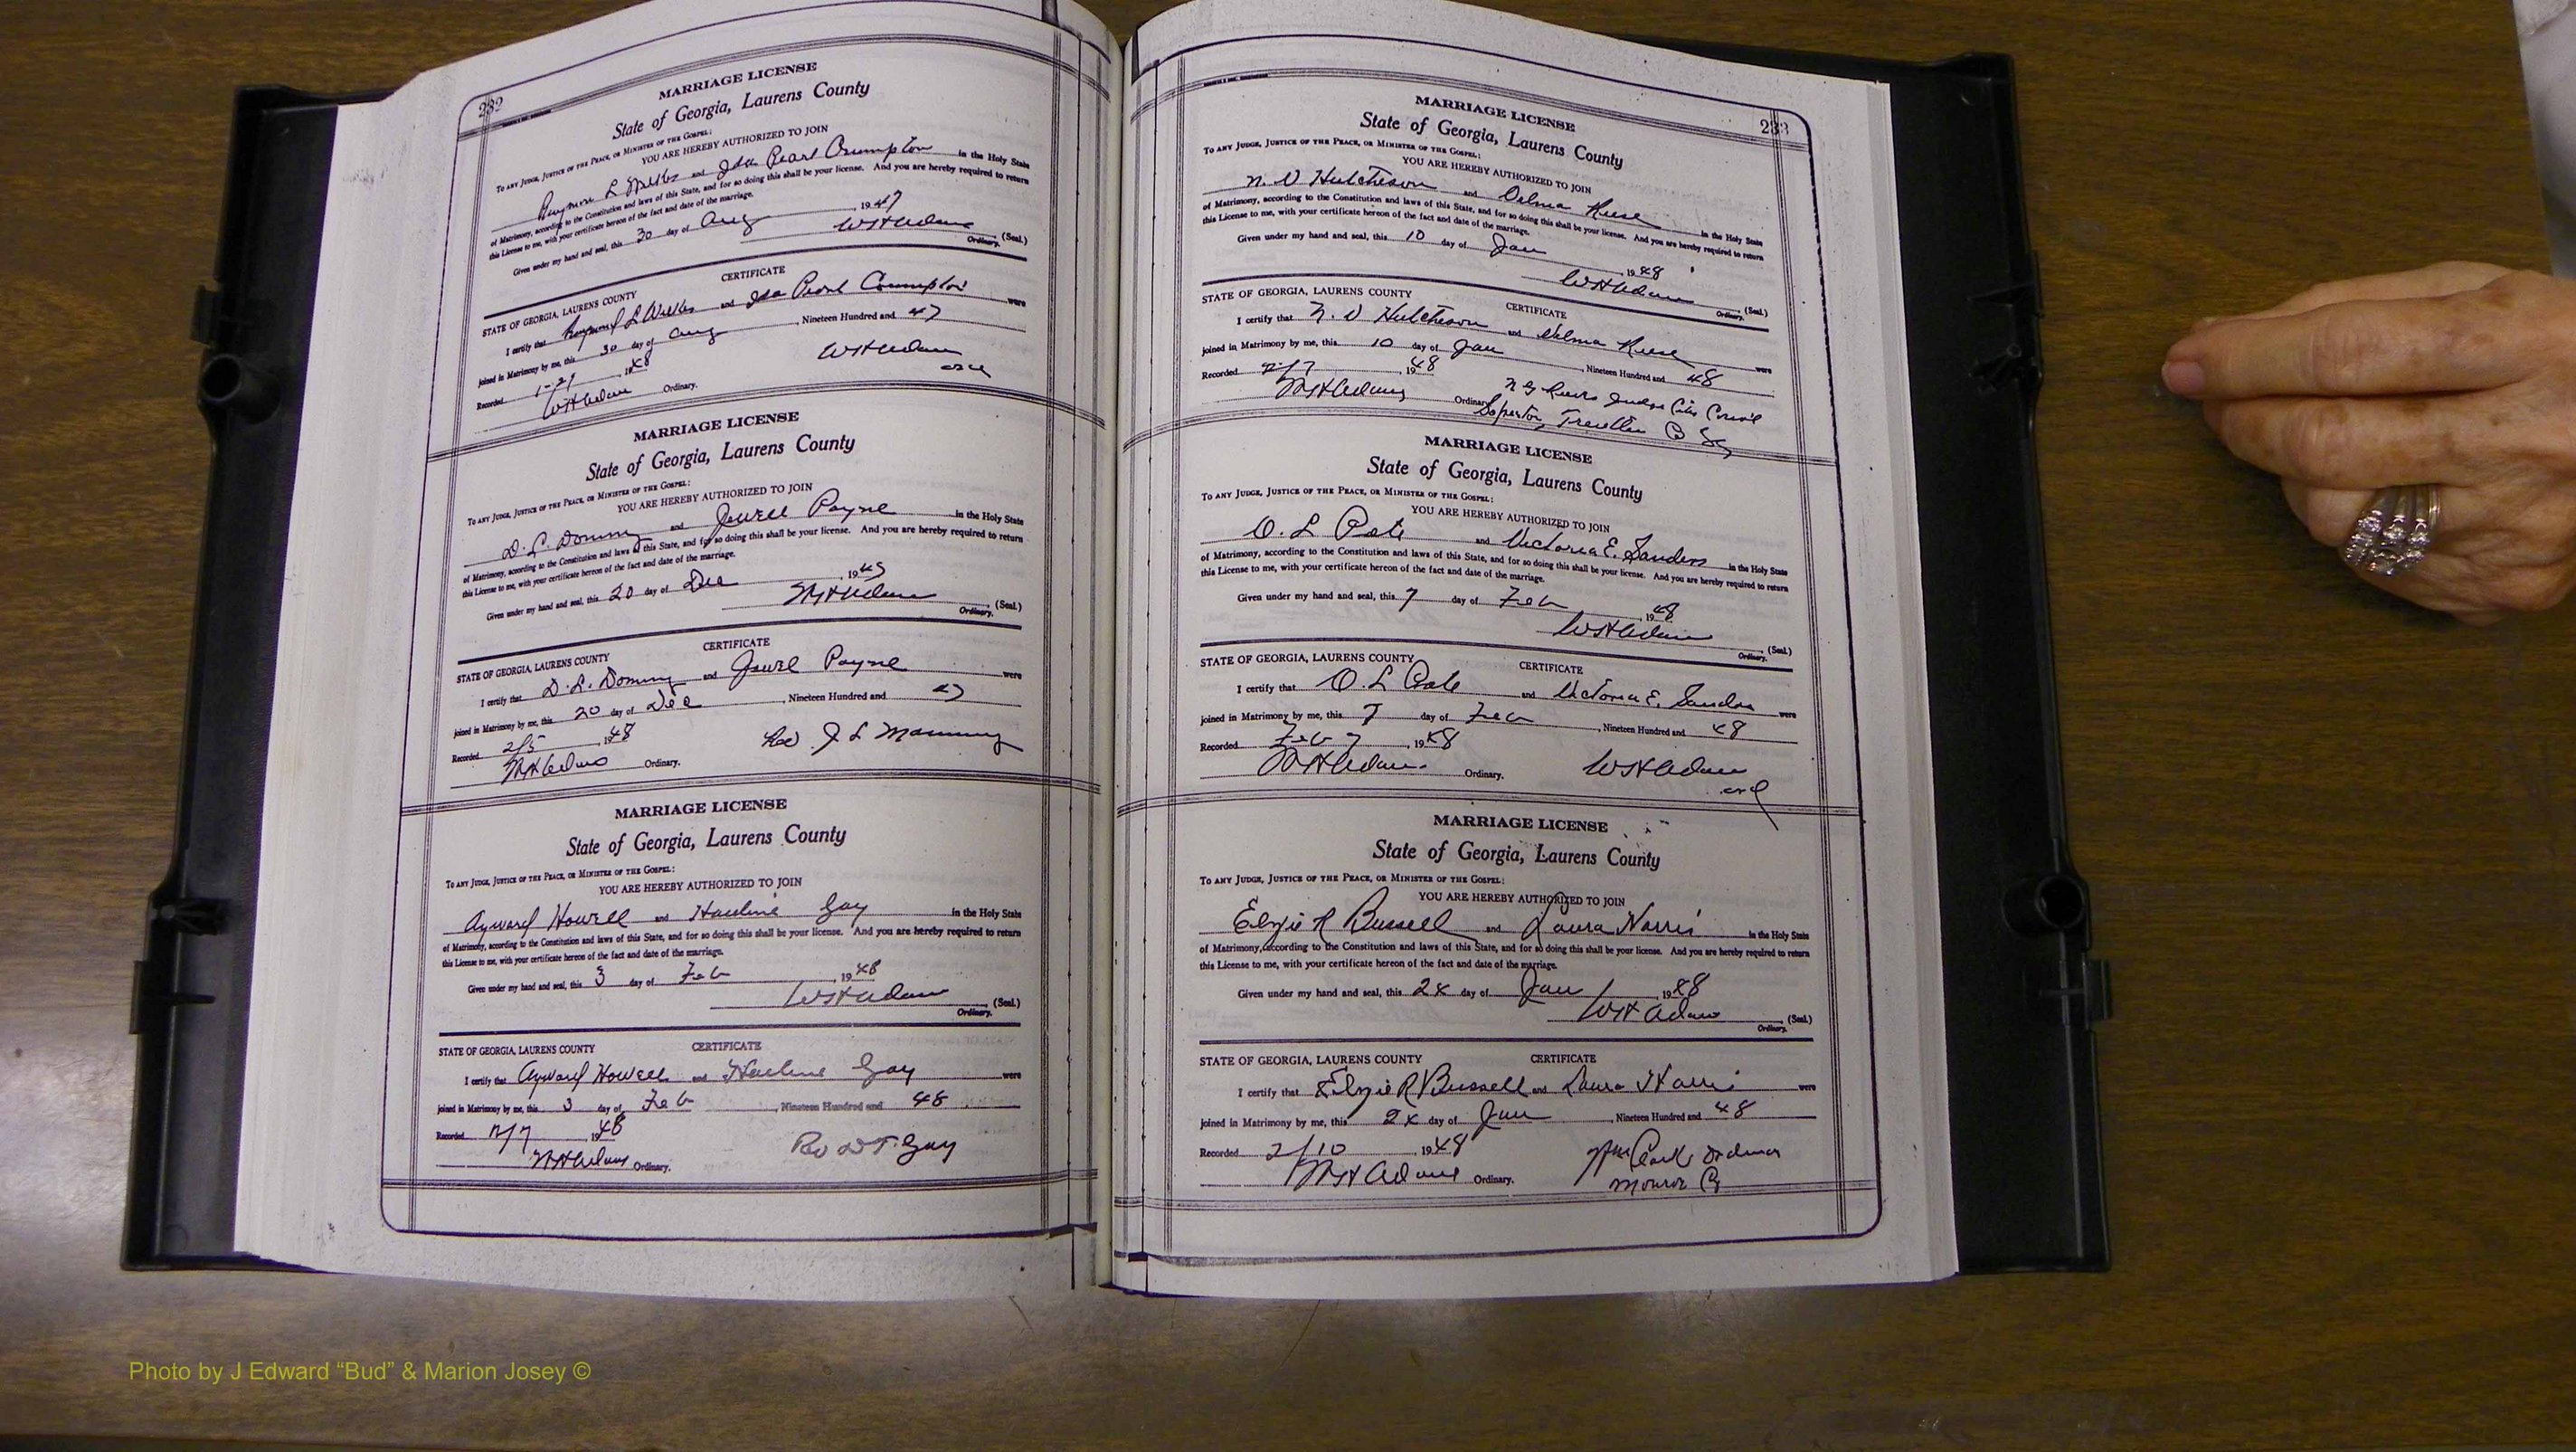 232
MARRIAGE LICENSE
State of Georgia, Laurens County
TO ANY JUDGE, JUSTICE OF THE PEACE, OR MINISTER OF THE GOSPEL:
YOU ARE HEREBY AUTHORIZED TO JOIN
L Wilkes and Ida Pearl Crumpton in the Holy State
of Matrimony, according to the Constitution and laws of this State, and for so doing this shall be your license. And you are hereby required to return
this License to me, with your certificate hereon of the fact and date of the marriage.
Given under my hand and seal, this 30 day of Aug, 1947
W H Adams (Seal.)
Ordinary.
CERTIFICATE
STATE OF GEORGIA, LAURENS COUNTY
I certify that L Wilkes and Ida Pearl Crumpton were
joined in Matrimony by me, this 30 day of Aug, Nineteen Hundred and 47
Recorded 1-29, 1948
W H Adams Ordinary.
W H Adams
MARRIAGE LICENSE
State of Georgia, Laurens County
TO ANY JUDGE, JUSTICE OF THE PEACE, OR MINISTER OF THE GOSPEL:
YOU ARE HEREBY AUTHORIZED TO JOIN
D. L. Dominy and Jewell Payne in the Holy State
of Matrimony, according to the Constitution and laws of this State, and for so doing this shall be your license. And you are hereby required to return
this License to me, with your certificate hereon of the fact and date of the marriage.
Given under my hand and seal, this 20 day of Dec, 19
W H Adams (Seal.)
Ordinary.
CERTIFICATE
STATE OF GEORGIA, LAURENS COUNTY
I certify that D. L. Dominy and Jewel Payne were
joined in Matrimony by me, this 20 day of Dec, Nineteen Hundred and 47
Recorded 2/5, 1948
W H Adams Ordinary.
Rev J L Manning
MARRIAGE LICENSE
State of Georgia, Laurens County
TO ANY JUDGE, JUSTICE OF THE PEACE, OR MINISTER OF THE GOSPEL:
YOU ARE HEREBY AUTHORIZED TO JOIN
Howell and Gay in the Holy State
of Matrimony, according to the Constitution and laws of this State, and for so doing this shall be your license. And you are hereby required to return
this License to me, with your certificate hereon of the fact and date of the marriage.
Given under my hand and seal, this 3 day of Feb, 1948
W H Adams (Seal.)
Ordinary.
STATE OF GEORGIA, LAURENS COUNTY CERTIFICATE
I certify that Howell and Gay were
joined in Matrimony by me, this 3 day of Feb, Nineteen Hundred and 48
Recorded 2/7, 1948
W H Adams Ordinary.
Rev W T. Gay
233
MARRIAGE LICENSE
State of Georgia, Laurens County
TO ANY JUDGE, JUSTICE OF THE PEACE, OR MINISTER OF THE GOSPEL:
YOU ARE HEREBY AUTHORIZED TO JOIN
N. D Hutcheson and Delma in the Holy State
of Matrimony, according to the Constitution and laws of this State, and for so doing this shall be your license. And you are hereby required to return
this License to me, with your certificate hereon of the fact and date of the marriage.
Given under my hand and seal, this 10 day of Jan, 1948
W H Adams (Seal.)
Ordinary.
STATE OF GEORGIA, LAURENS COUNTY CERTIFICATE
I certify that N. D Hutcheson and Delma were
joined in Matrimony by me, this 10 day of Jan, Nineteen Hundred and 48
Recorded 2/7, 1948
W H Adams Ordinary.
Judge City
Soperton, Treutlen Co Ga
MARRIAGE LICENSE
State of Georgia, Laurens County
TO ANY JUDGE, JUSTICE OF THE PEACE, OR MINISTER OF THE GOSPEL:
YOU ARE HEREBY AUTHORIZED TO JOIN
O. L Pate and Victoria E. Sanders in the Holy State
of Matrimony, according to the Constitution and laws of this State, and for so doing this shall be your license. And you are hereby required to return
this License to me, with your certificate hereon of the fact and date of the marriage.
Given under my hand and seal, this 7 day of Feb, 1948
W H Adams (Seal.)
Ordinary.
STATE OF GEORGIA, LAURENS COUNTY CERTIFICATE
I certify that O. L Pate and Victoria E. Sanders were
joined in Matrimony by me, this 7 day of Feb, Nineteen Hundred and 48
Recorded Feb 7, 1948
W H Adams Ordinary.
W H Adams
ord
MARRIAGE LICENSE
State of Georgia, Laurens County
TO ANY JUDGE, JUSTICE OF THE PEACE, OR MINISTER OF THE GOSPEL:
YOU ARE HEREBY AUTHORIZED TO JOIN
Elzie R Bussell and Laura Harris in the Holy State
of Matrimony, according to the Constitution and laws of this State, and for so doing this shall be your license. And you are hereby required to return
this License to me, with your certificate hereon of the fact and date of the marriage.
Given under my hand and seal, this 24 day of Jan, 1948
W H Adams (Seal.)
Ordinary.
STATE OF GEORGIA, LAURENS COUNTY CERTIFICATE
I certify that Elzie R Bussell and Laura Harris were
joined in Matrimony by me, this 24 day of Jan, Nineteen Hundred and 48
Recorded 2/10, 1948
W H Adams Ordinary.
Monroe Co
Photo by J Edward “Bud” & Marion Josey ©